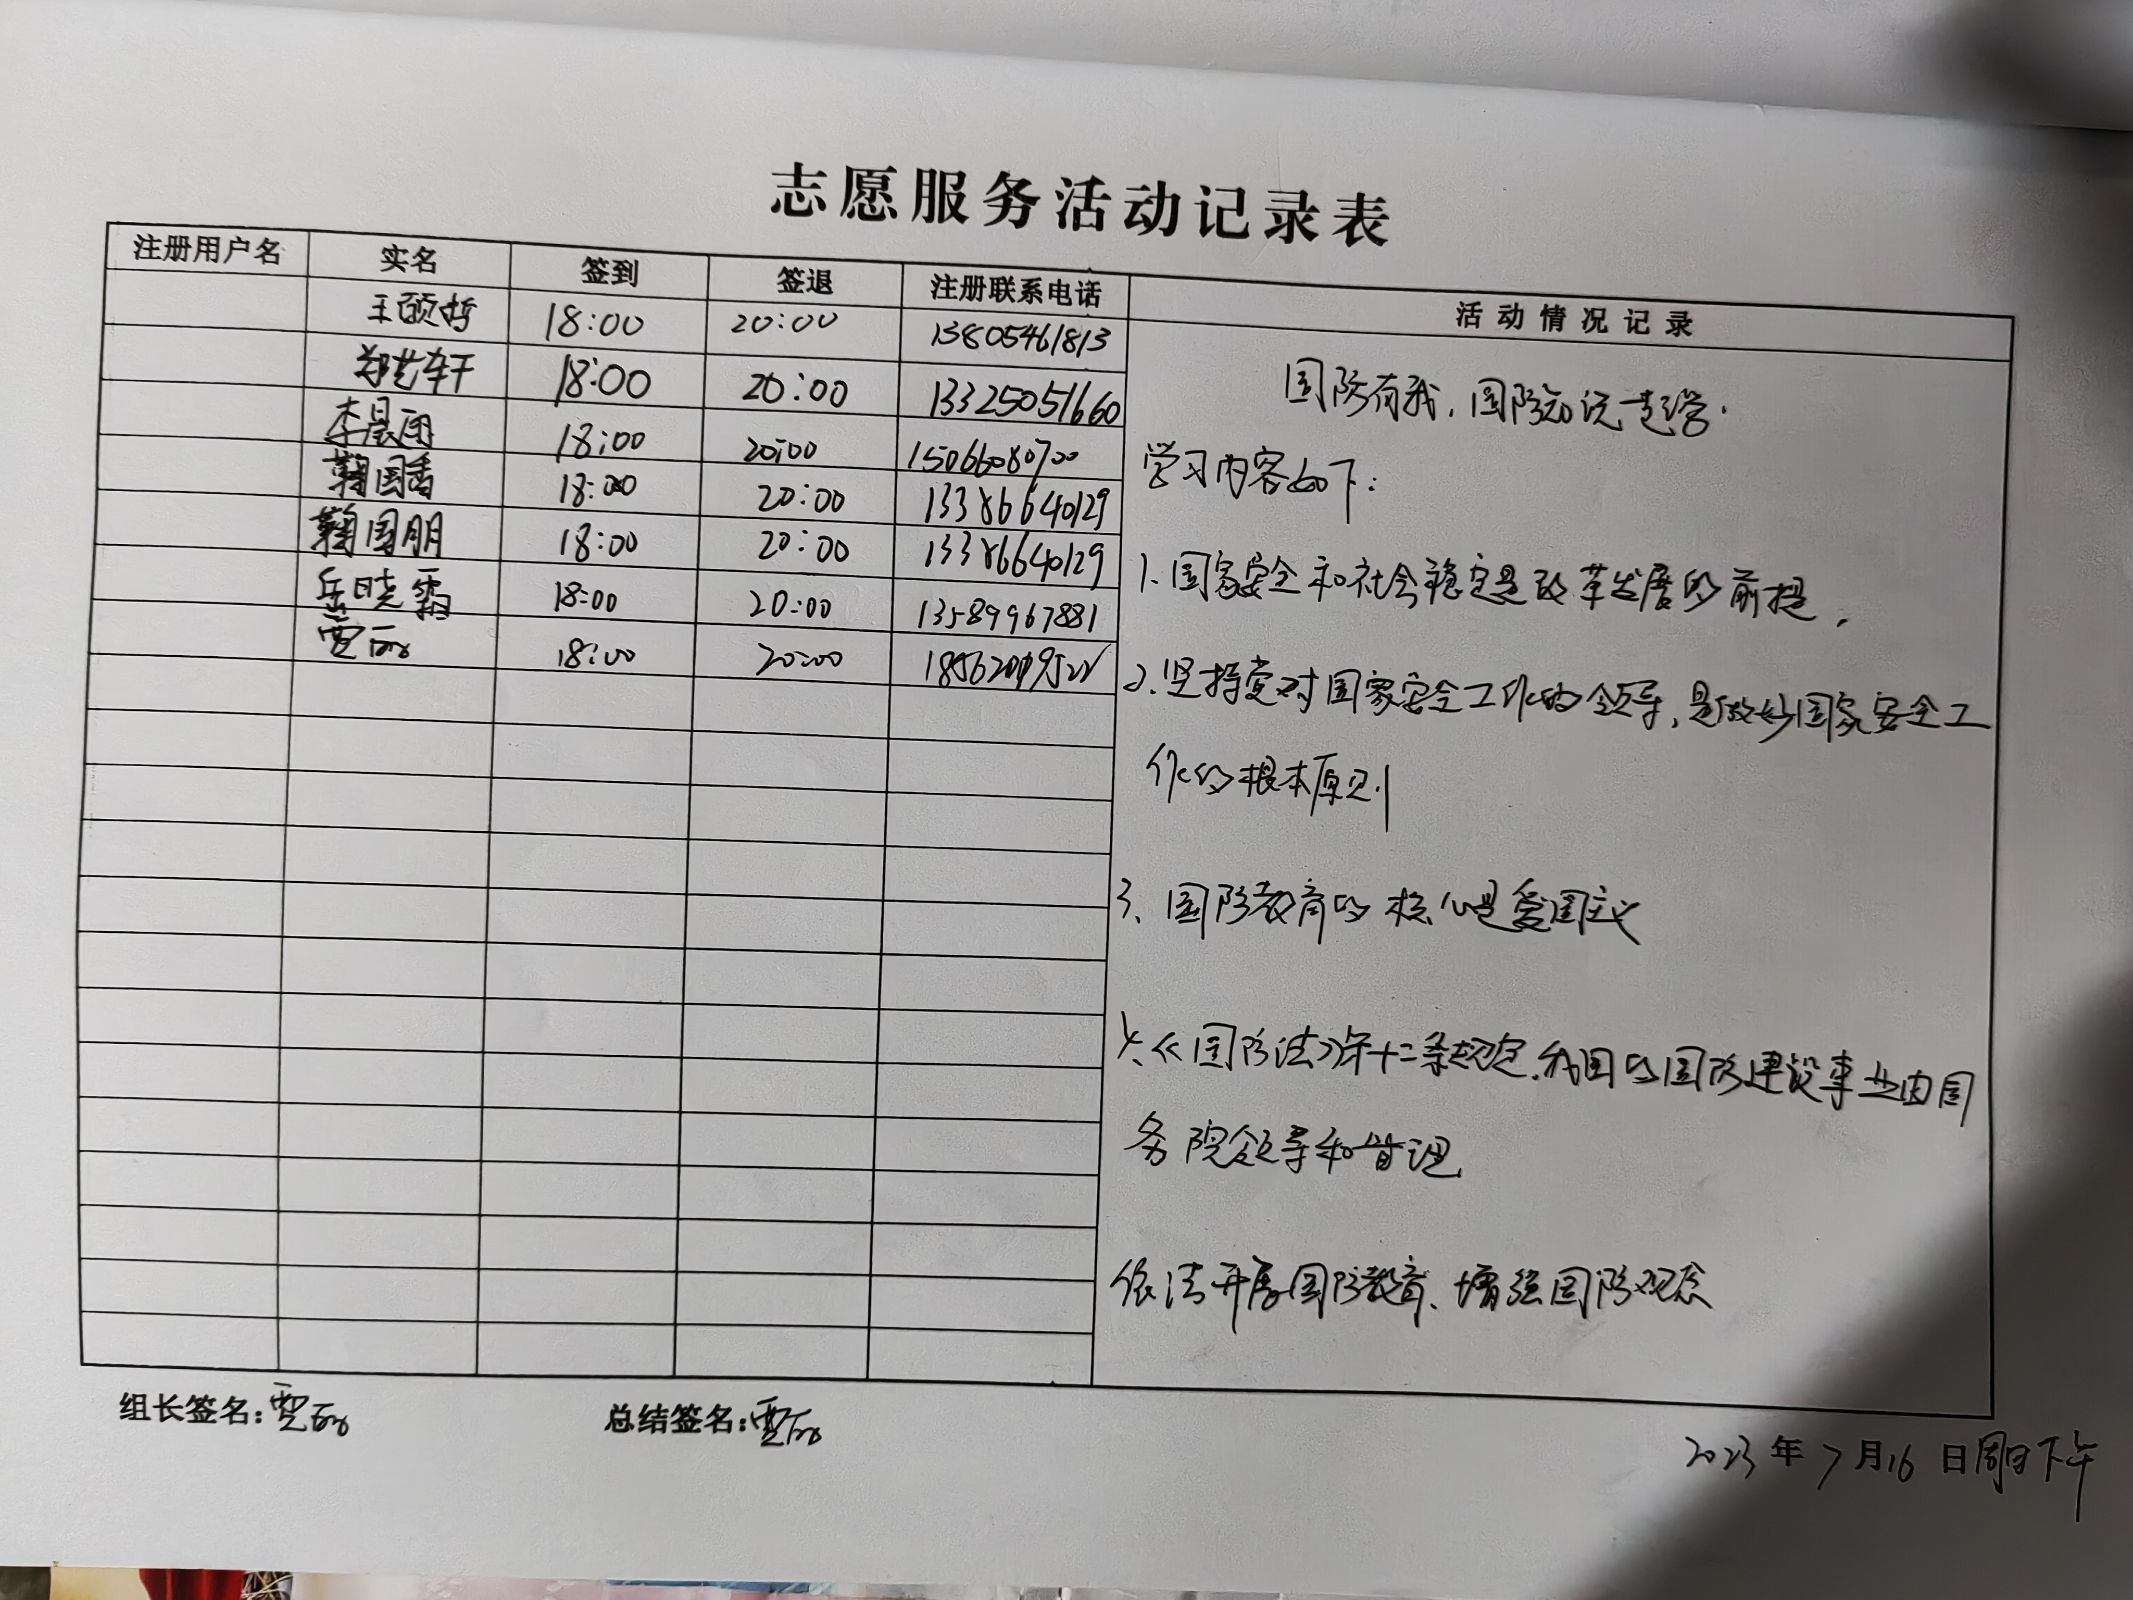 志愿服务活动记录表
注册用户名 实名 签到 签退 注册联系电话 活动情况记录
王颐哲 18:00 20:00 13805461813
郑艺轩 18:00 20:00 13325051660
李晨雨 18:00 20:00 15066080700
鞠国香 18:00 20:00 13386640129
鞠国朋 18:00 20:00 13386640129
岳晓霜 18:00 20:00 13589967881
贾丽 18:00 20:00
国防有我，国防知识一起学.
学习内容如下：
1、国家安全和社会稳定是改革发展的前提，
2、坚持党对国家安全工作的领导，是做好国家安全工
作的根本原则
3、国防教育的核心是爱国主义
4、《国防法》第十二条规定，我国的国防建设事业由国
务院领导和管理
依法开展国防教育、增强国防观念
组长签名：贾丽 总结签名：贾丽
2023年7月16日周日下午